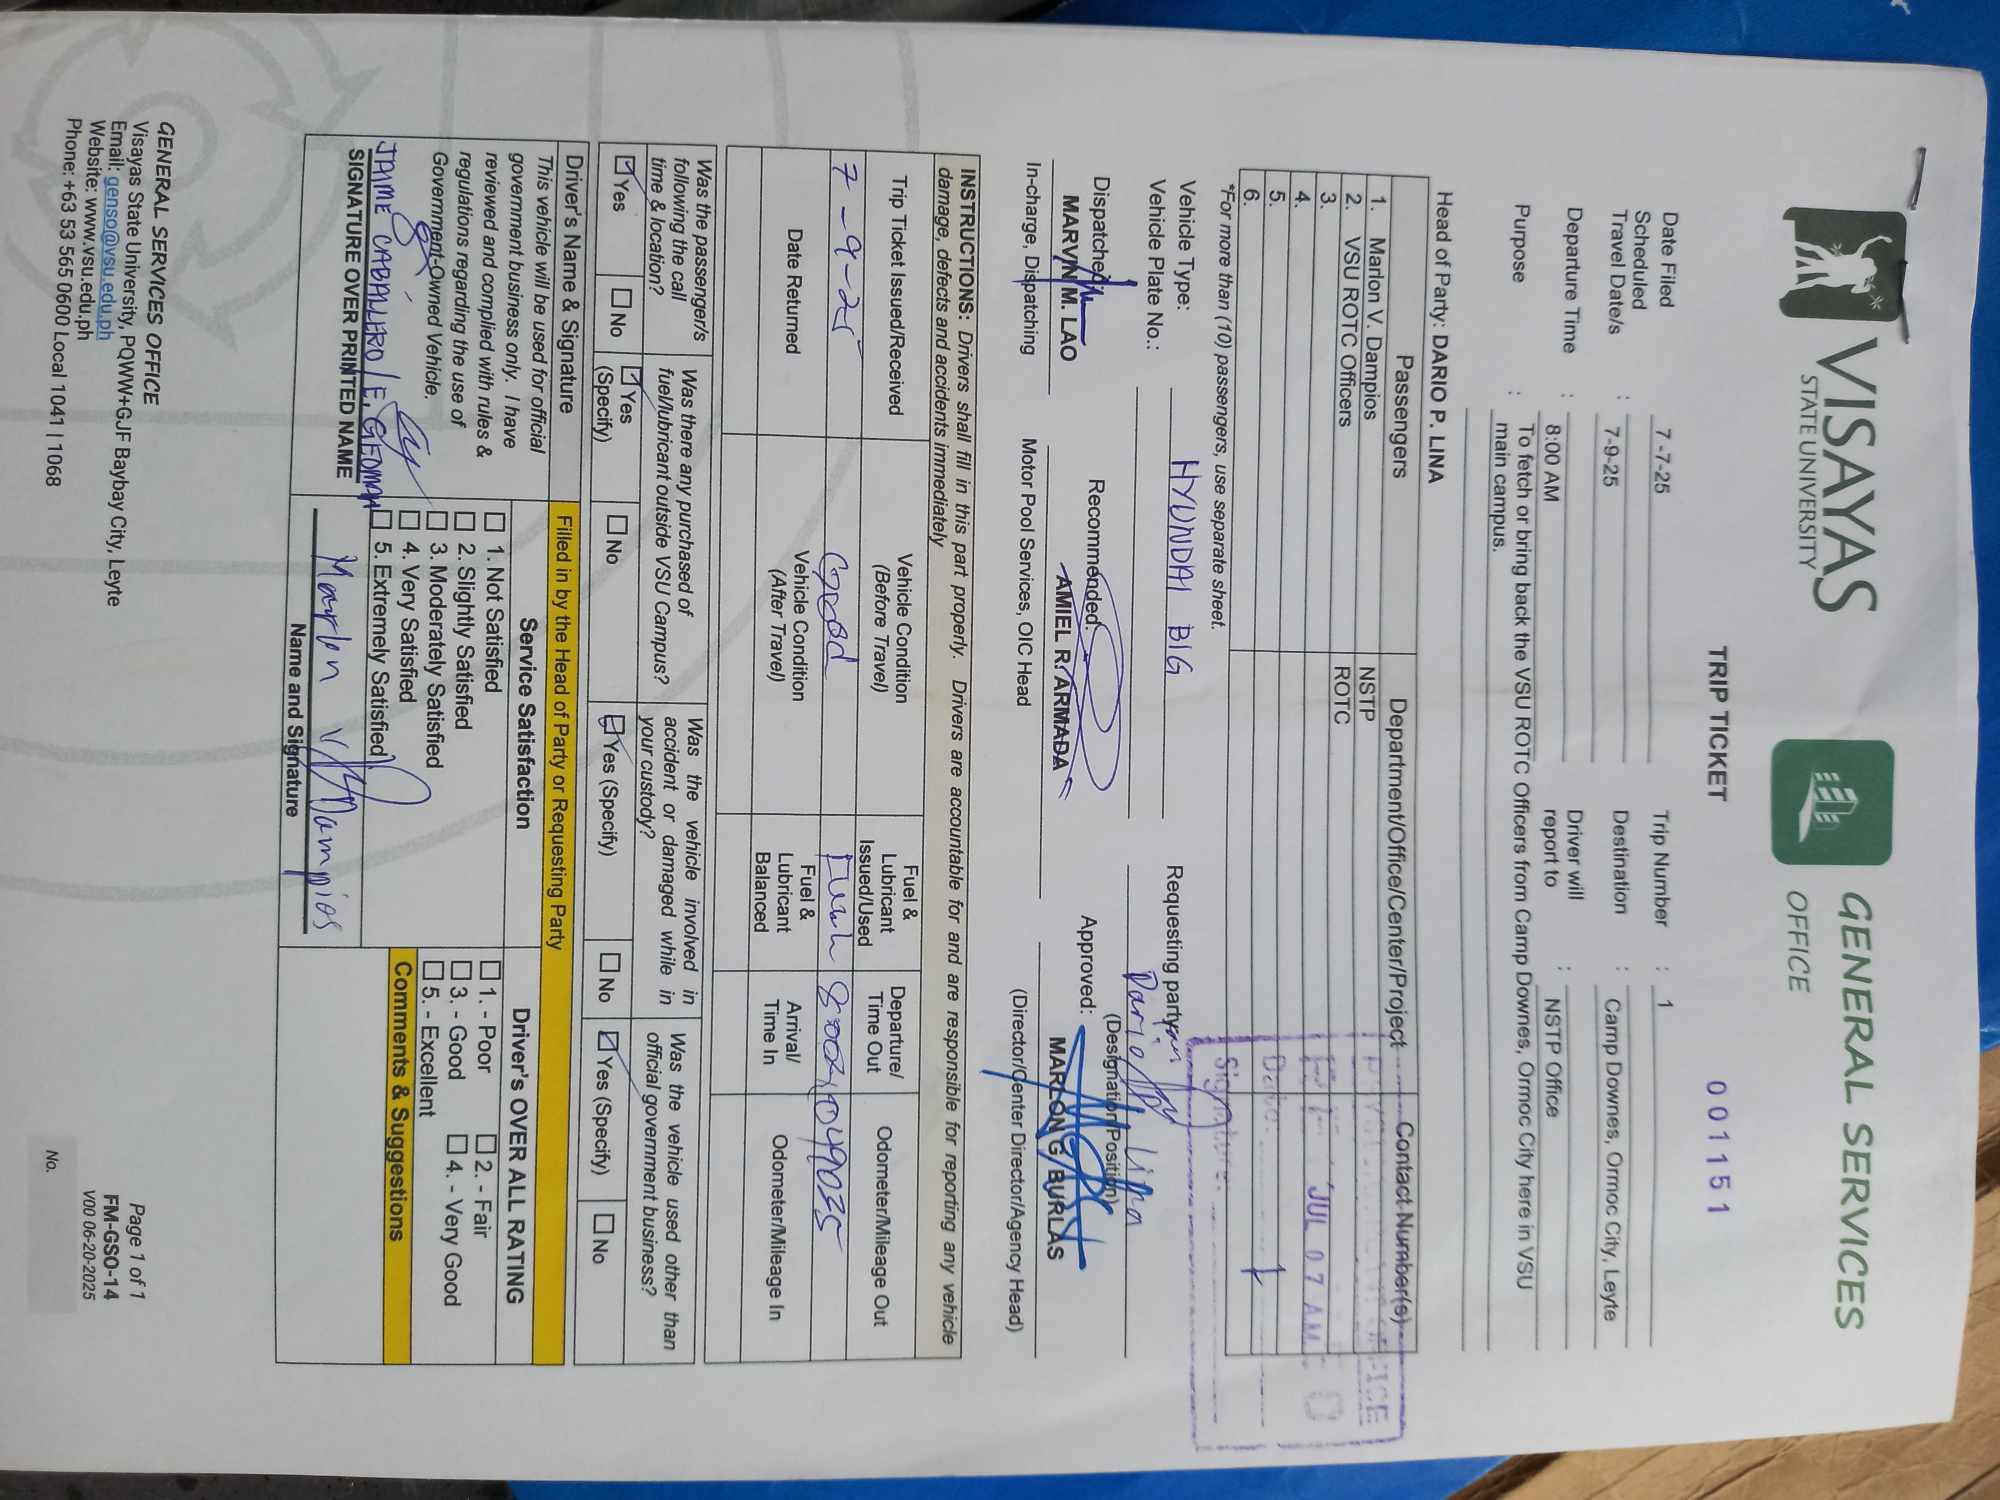 VISAYAS
STATE UNIVERSITY
GENERAL SERVICES
OFFICE
TRIP TICKET
001151
Date Filed : 7-7-25
Trip Number : 1
Scheduled
Travel Date/s : 7-9-25
Destination : Camp Downes, Ormoc City, Leyte
Departure Time : 8:00 AM
Driver will
report to : NSTP Office
Purpose : To fetch or bring back the VSU ROTC Officers from Camp Downes, Ormoc City here in VSU
main campus.
Head of Party: DARIO P. LINA
Passengers Department/Office/Center/Project Contact Number(s)
1. Marlon V. Dampios NSTP
2. VSU ROTC Officers ROTC
3.
4.
5.
6.
JUL 07
Date:
Signature:
*For more than (10) passengers, use separate sheet.
Vehicle Type: HYUNDAI BIG
Vehicle Plate No.:
Requesting party:
Dario Lina
(Designation/Position)
Dispatched:
Recommended:
Approved:
MARVIN M. LAO
AMIEL R. ARMADA
MARLON G. BURLAS
In-charge, Dispatching
Motor Pool Services, OIC Head
(Director/Center Director/Agency Head)
INSTRUCTIONS: Drivers shall fill in this part properly. Drivers are accountable for and are responsible for reporting any vehicle
damage, defects and accidents immediately
Trip Ticket Issued/Received
Vehicle Condition
(Before Travel)
Fuel &
Lubricant
Issued/Used
Departure/
Time Out
Odometer/Mileage Out
7-9-25 Good 8:00 049035
Date Returned
Vehicle Condition
(After Travel)
Fuel &
Lubricant
Balanced
Arrival/
Time In
Odometer/Mileage In
Was the passenger/s
following the call
time & location?
Was there any purchased of
fuel/lubricant outside VSU Campus?
Was the vehicle involved in
accident or damaged while in
your custody?
Was the vehicle used other than
official government business?
☑ Yes
☐ No
☑ Yes
(Specify)
☐ No
☑ Yes (Specify)
☐ No
☑ Yes (Specify)
☐ No
Driver's Name & Signature
Filled in by the Head of Party or Requesting Party
This vehicle will be used for official
government business only. I have
reviewed and complied with rules &
regulations regarding the use of
Government-Owned Vehicle.
JAIME CABALLERO / E. GEDMAN
SIGNATURE OVER PRINTED NAME
Service Satisfaction
☐ 1. Not Satisfied
☐ 2. Slightly Satisfied
☐ 3. Moderately Satisfied
☐ 4. Very Satisfied
☐ 5. Extremely Satisfied
Marlon V. Dampios
Name and Signature
Driver's OVER ALL RATING
☐ 1. - Poor ☐ 2. - Fair
☐ 3. - Good ☐ 4. - Very Good
☐ 5. - Excellent
Comments & Suggestions
GENERAL SERVICES OFFICE
Visayas State University, PQWW+GJF Baybay City, Leyte
Email: genso@vsu.edu.ph
Website: www.vsu.edu.ph
Phone: +63 53 565 0600 Local 1041 | 1068
Page 1 of 1
FM-GSO-14
V00 06-20-2025
No.